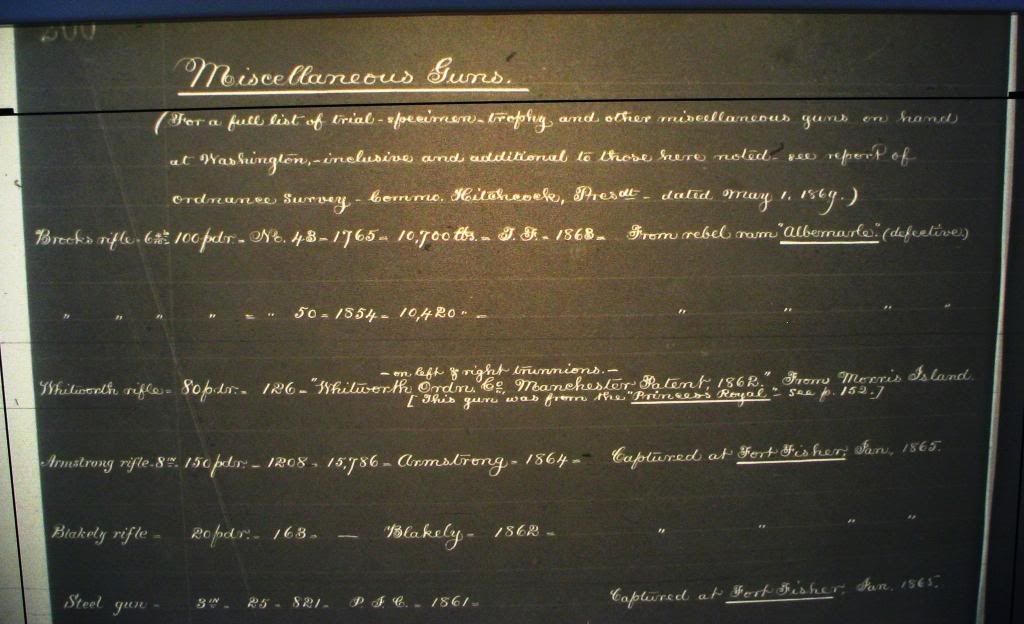 200
Miscellaneous Guns.
(For a full list of trial-specimen-trophy, and other miscellaneous guns on hand
at Washington,-inclusive and additional to those here noted- see report of
ordnance survey - Commo. Hitchcock, Presdt - dated May 1, 1869.)
Brooks rifle - 100pdr. - No. 43 - 1765 - 10,700 lbs. - T. F. - 1863 - From rebel ram "Albemarle." (defective)
" " " " = " 50 - 1854 - 10,420 " - " " " "
- on left & right trunnions. -
Whitworth rifle - 80pdr. - 126 - "Whitworth Ordn. Co. Manchester Patent, 1862." From Morris Island.
[This gun was from the "Princess Royal" - see p. 152.]
Armstrong rifle - 8in. 150pdr. - 1208 - 15,786 - Armstrong - 1864 - Captured at Fort Fisher, Jan, 1865.
Blakely rifle - 20pdr. - 163 - — Blakely - 1862 - " " " "
Steel gun - 3in. - 25 - 821 - P. I. C. - 1861 - Captured at Fort Fisher, Jan. 1865.